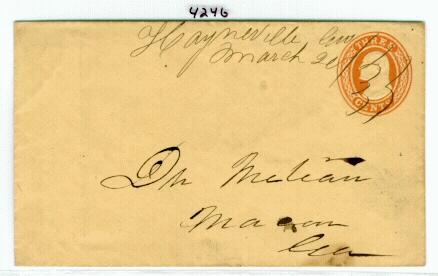 4246
Hayneville Geo
March 20
THREE
CENTS
Dr McLean
Macon
Geo